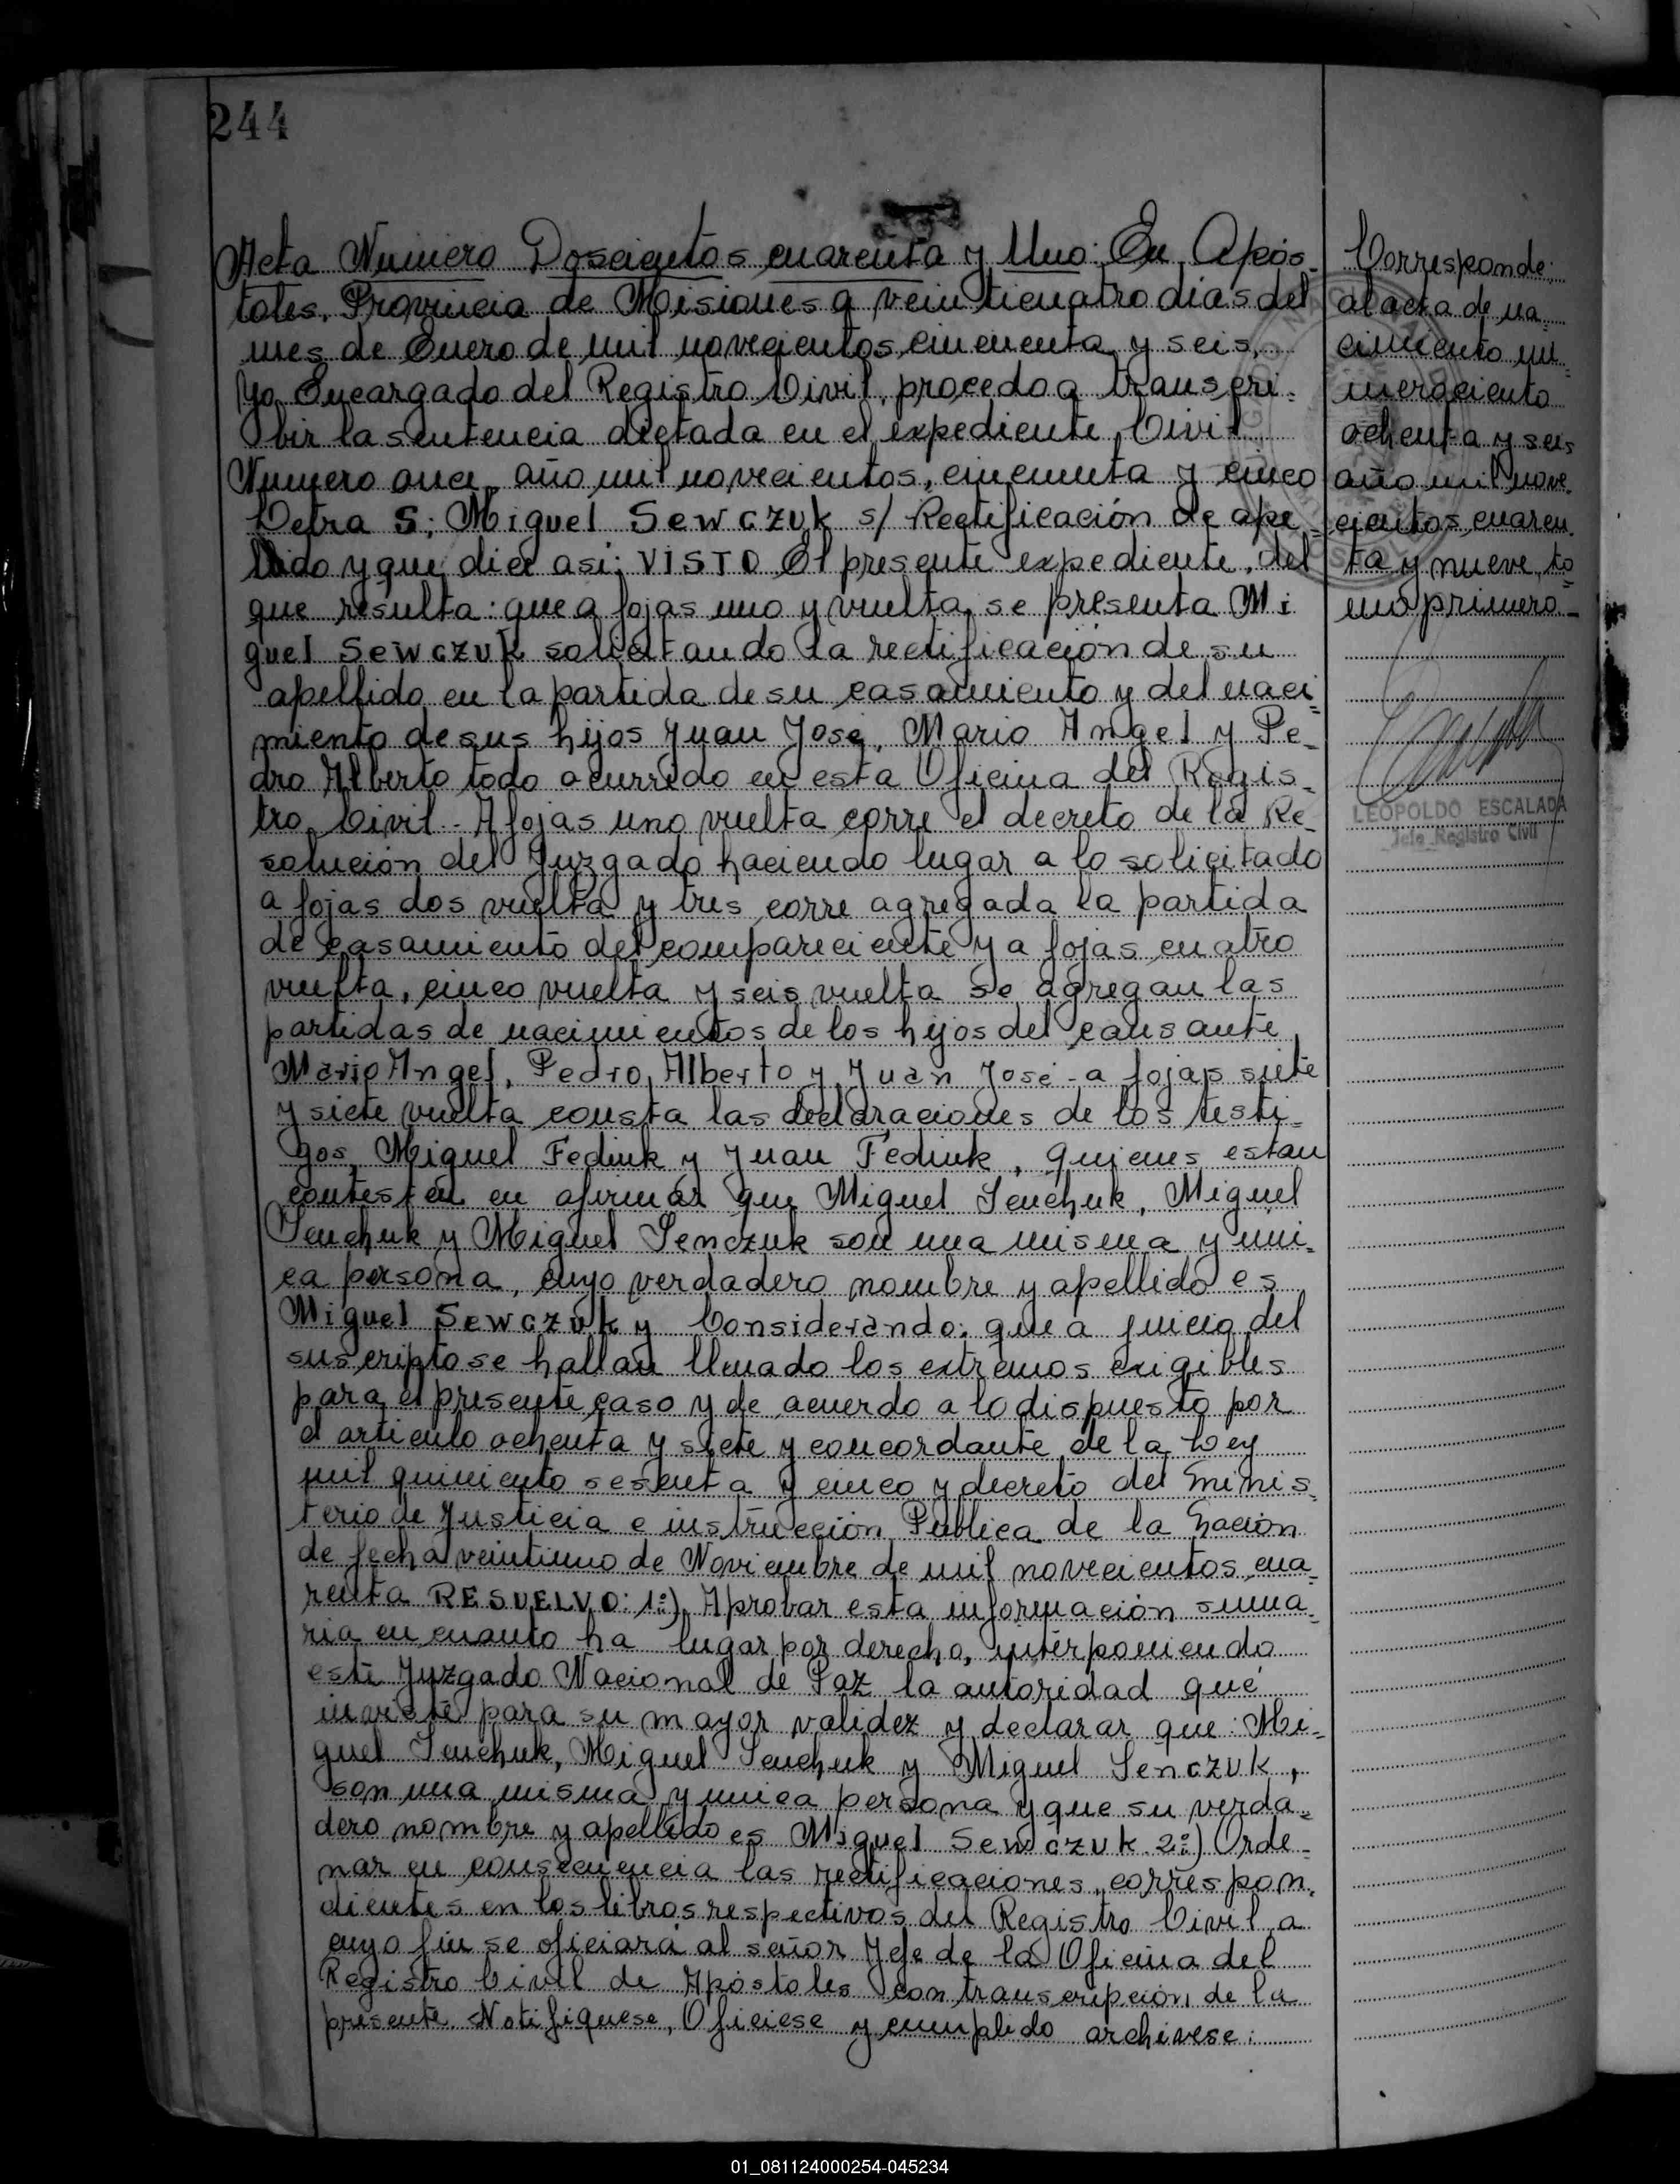 244
Acta Numero Doscientos cuarenta y Uno: En Após-
toles, Provincia de Misiones a veinticuatro dias del
mes de Enero de mil novecientos cincuenta y seis,
Yo Encargado del Registro Civil, procedo a transcri-
bir la sentencia dictada en el expediente Civil
Numero once año mil novecientos, cincuenta y cinco
Letra S; Miguel Sewczuk s/ Rectificación de ape-
llido y que dice asi: VISTO El presente expediente, del
que resulta: que a fojas uno y vuelta, se presenta Mi
guel Sewczuk solicitando la rectificación de su
apellido en la partida de su casamiento y del naci-
miento de sus hijos Juan José, Mario Angel y Pe-
dro Alberto todo ocurrido en esta Oficina del Regis-
tro Civil - A fojas uno vuelta corre el decreto de la Re-
solución del Juzgado haciendo lugar a lo solicitado
a fojas dos vuelta y tres corre agregada la partida
de casamiento del compareciente y a fojas cuatro
vuelta, cinco vuelta y seis vuelta se agregan las
partidas de nacimientos de los hijos del causante
Mario Angel, Pedro Alberto y Juan José - a fojas siete
y siete vuelta consta las declaraciones de los testi-
gos, Miguel Fediuk y Juan Fediuk, quienes estan
contesten en afirmar que Miguel Senchuk, Miguel
Senchuk y Miguel Senczuk son una misma y uni-
ca persona, cuyo verdadero nombre y apellido es
Miguel Sewczuk y Considerando: que a juicio del
suscripto se hallan llenado los extremos exigibles
para el presente caso y de acuerdo a lo dispuesto por
el articulo ochenta y siete y concordante de la Ley
mil quiniento sesenta y cinco y decreto del Minis-
terio de Justicia e instrucción Publica de la Nación
de fecha veintiuno de Noviembre de mil novecientos cua-
renta RESUELVO: 1º) Aprobar esta información suma-
ria en cuanto ha lugar por derecho, interponiendo
este Juzgado Nacional de Paz la autoridad que
inviste para su mayor validez y declarar que: Mi-
guel Senchuk, Miguel Senchuk y Miguel Senczuk,
son una misma y unica persona y que su verda-
dero nombre y apellido es Miguel Sewczuk 2º) Orde-
nar en consecuencia las rectificaciones correspon-
dientes en los libros respectivos del Registro Civil a
cuyo fin se oficiará al señor Jefe de la Oficina del
Registro Civil de Apóstoles con transcripción de la
presente Notifiquese, Oficiese y cumplido archivese.
Corresponde
al acta de na-
cimiento nu-
mero ciento
ochenta y seis
año mil nove-
cientos cuaren-
ta y nueve, to-
mo primero -
LEOPOLDO ESCALADA
Jefe Registro Civil
01_081124000254-045234